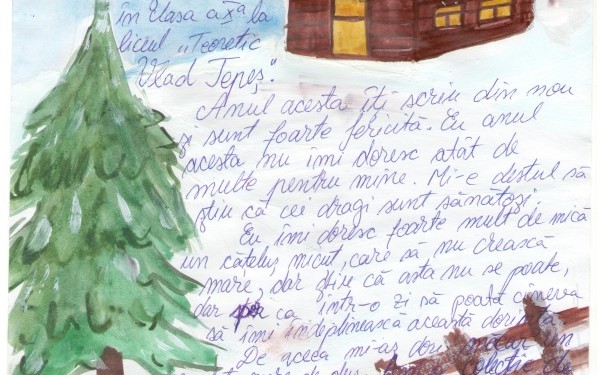 în clasa a X a la
liceul „Teoretic
Vlad Țepeș".
Anul acesta îți scriu din nou
și sunt foarte fericită. Eu anul
acesta nu îmi doresc atât de
multe pentru mine. Mi-e destul să
știu că cei dragi sunt sănătoși.
Eu îmi doresc foarte mult de mică
un cățeluș micuț, care să nu crească
mare, dar știu că asta nu se poate,
dar sper ca într-o zi să poată cineva
să îmi îndeplinească această dorință.
De aceea mi-aș dori măcar un
mare de pluș. Am o colecție de